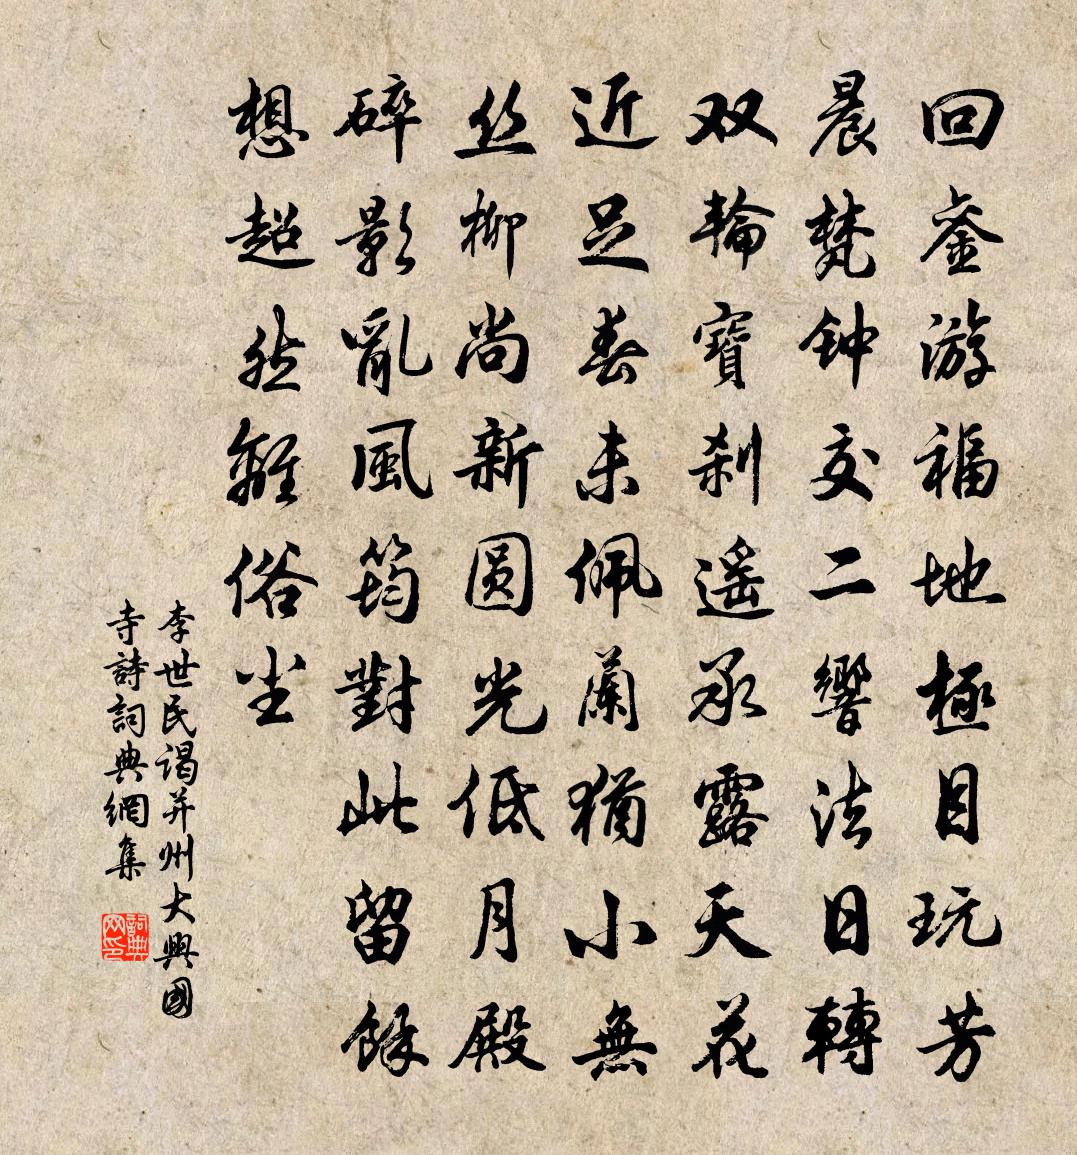 回銮游福地極目玩芳
晨梵钟交二響法日轉
双輪寶刹遥承露天花
近足春未佩蘭猶小無
丝柳尚新圆光低月殿
碎影亂風筠對此留餘
想超然離俗尘
李世民谒并州大興國
寺詩詞典網集
詞典网印